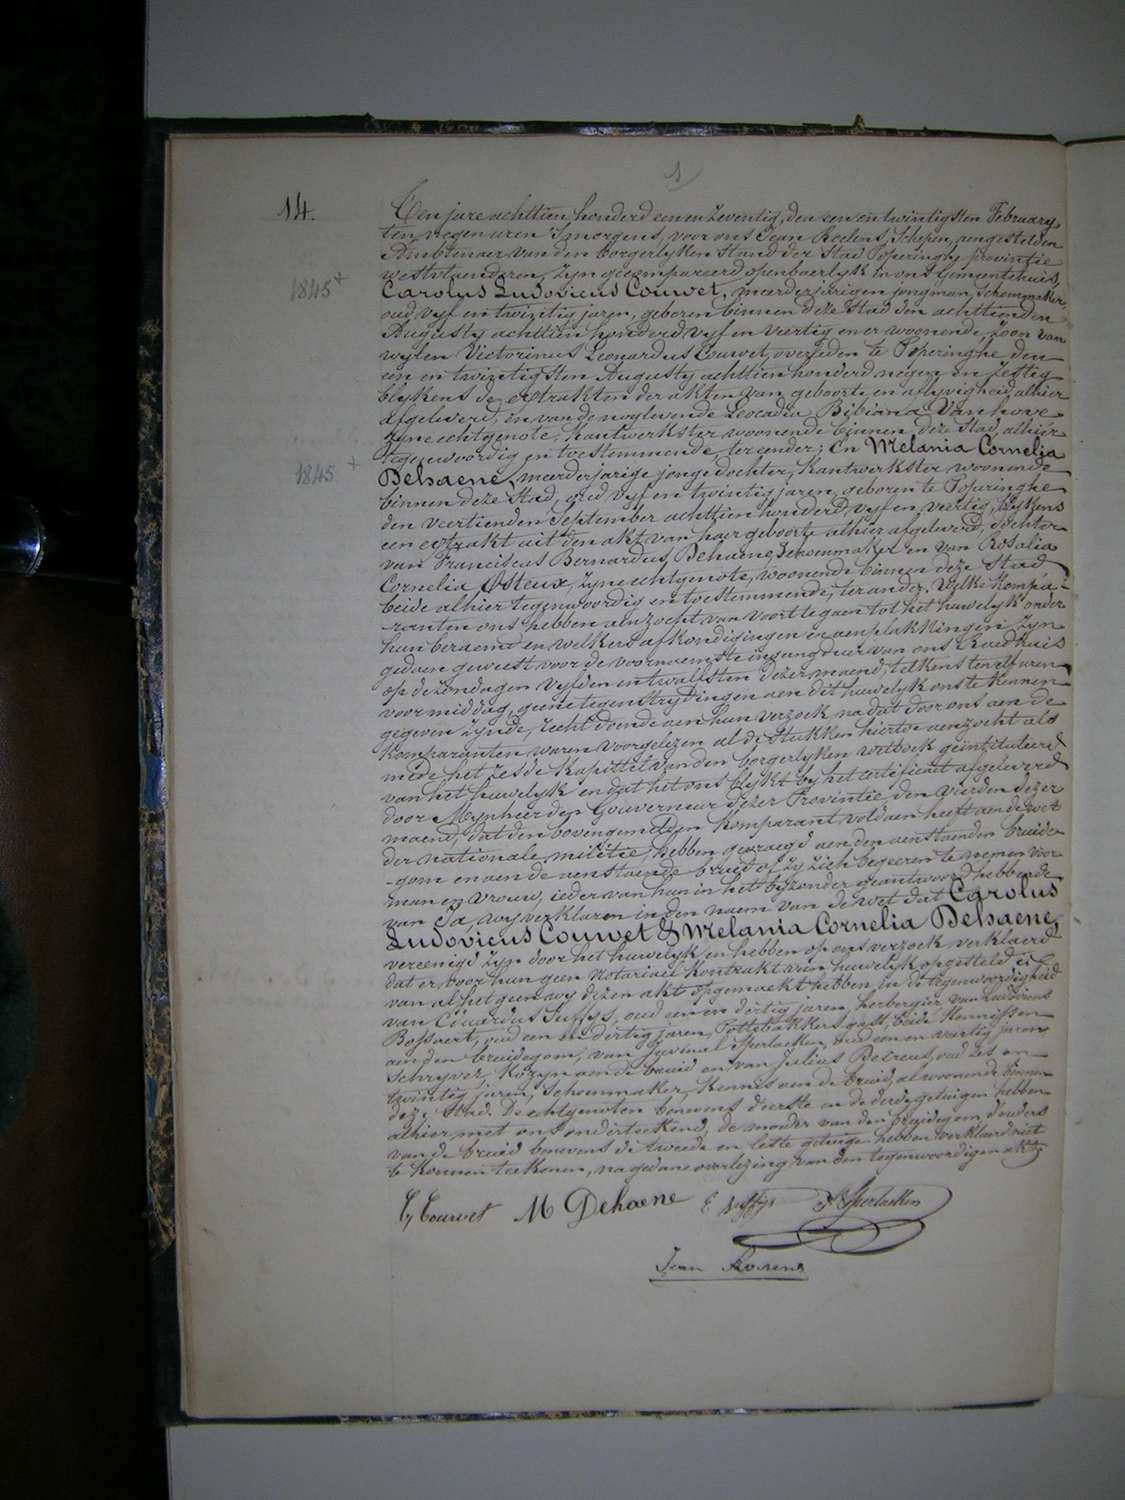 1
14.
Ten jare achttien honderd een en zeventig, den een en twintigsten February
ten negen uren 's morgens, voor ons Jean Roelens, Schepen, aengestelden
Ambtenaer van den borgerlyken stand der Stad Poperinghe provintie
westvlaenderen, zyn gecompareerd openbaerlyk in ons Gemeentehuis,
1845+
Carolus Ludovicus Couwet, meerderjarigen jongman, schoenmaker,
oud vyf en twintig jaren, geboren binnen deze Stad den achttienden
Augusty achttien honderd vyf en veertig en er woonende, zoon van
wylen Victorinus Leonardus Couwet, overleden te Poperinghe den
een en twintigsten Augusty achttien honderd negen en zestig
blykens de extrakten der akten van geboorte en aflyvigheid alhier
afgeleverd, en van de noglevende Leocadia Bibiana Vanhove
zyne echtgenote, kantwerkster woonende binnen deze Stad, alhier
tegenwoordig en toestemmende, ter eender; En Melania Cornelia
1845+
Dehaene, meerderjarige jonge dochter, kantwerkster woonende
binnen deze Stad, oud vyf en twintig jaren, geboren te Poperinghe
den veertienden September achttien honderd vyf en veertig, blykens
een extrakt uit den akt van haer geboorte alhier afgeleverd, dochter
van Franciscus Bernardus Dehaene, schoenmaker en van Rosalia
Cornelia Osteux, zyne echtgenote, woonende binnen deze Stad
beide alhier tegenwoordig en toestemmende, ter ander. Welke kompa-
ranten ons hebben aenzocht van voort te gaen tot het huwelyk onder
hun beraemd en welkers afkondigingen en aenplakkingen zyn
gedaen geweest voor de voornaemste ingangdeur van ons Raedhuis
op de zondagen vyfden en twalfsten dezer maend, telkens ten elf uren
voormiddag, geene tegenstrydingen aen dit huwelyk ons te kennen
gegeven zynde, recht doende aen hun verzoek, na dat door ons aen de
komparanten waren voorgelezen al de stukken hiertoe aenzocht als
mede het zesde kapittel van den borgerlyken wetboek geïntituleerd
van het huwelyk en dat het ons blykt by het certificaet afgeleverd
door Mynheer den Gouverneur dezer Provintie, den vierden dezer
maend, dat den bovengemelden komparant voldaen heeft aen de wet
der nationale militie, hebben gevraegd aen den aenstaenden bruide-
-gom en aen de aenstaende bruid of zy zich begeeren te nemen voor
man en vrouw, ieder van hun in het byzonder geantwoord hebbende
van Ja, wy verklaren in den naem van de wet dat Carolus
Ludovicus Couwet & Melania Cornelia Dehaene,
vereenigd zyn door het huwelyk en hebben op ons verzoek verklaerd
dat er voor hun geen Notariael kontrakt van huwelyk opgesteld is
van al het geen wy dezen akt opgemaekt hebben, in de tegenwoordigheid
van Eduardus Suffys, oud een en dertig jaren, herbergier, van
Bossaert, oud een en dertig jaren, Pottebakkers gast, beide kennissen
aen den bruidegom, van Juvenal Sperlaeken, oud een en veertig jaren,
schryver, kozyn aen de bruid en van Julius Decreus, oud zes en
twintig jaren, schoenmaker, kennis aen de bruid, al woonende binnen
deze Stad. De echtgenoten benevens d'eerste en de derde getuigen hebben
alhier met ons onderteekend, de moeder van den bruidegom, d'ouders
van de bruid benevens de tweede en leste getuige hebben verklaerd niet
te konnen teekenen, na gedane overlezing van den tegenwoordigen akt.
C Couwet M Dehaene E Suffys J Sperlaeken
Jean Roelens